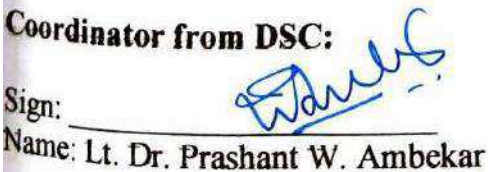 Coordinator from DSC:
Sign:
Name: Lt. Dr. Prashant W. Ambekar